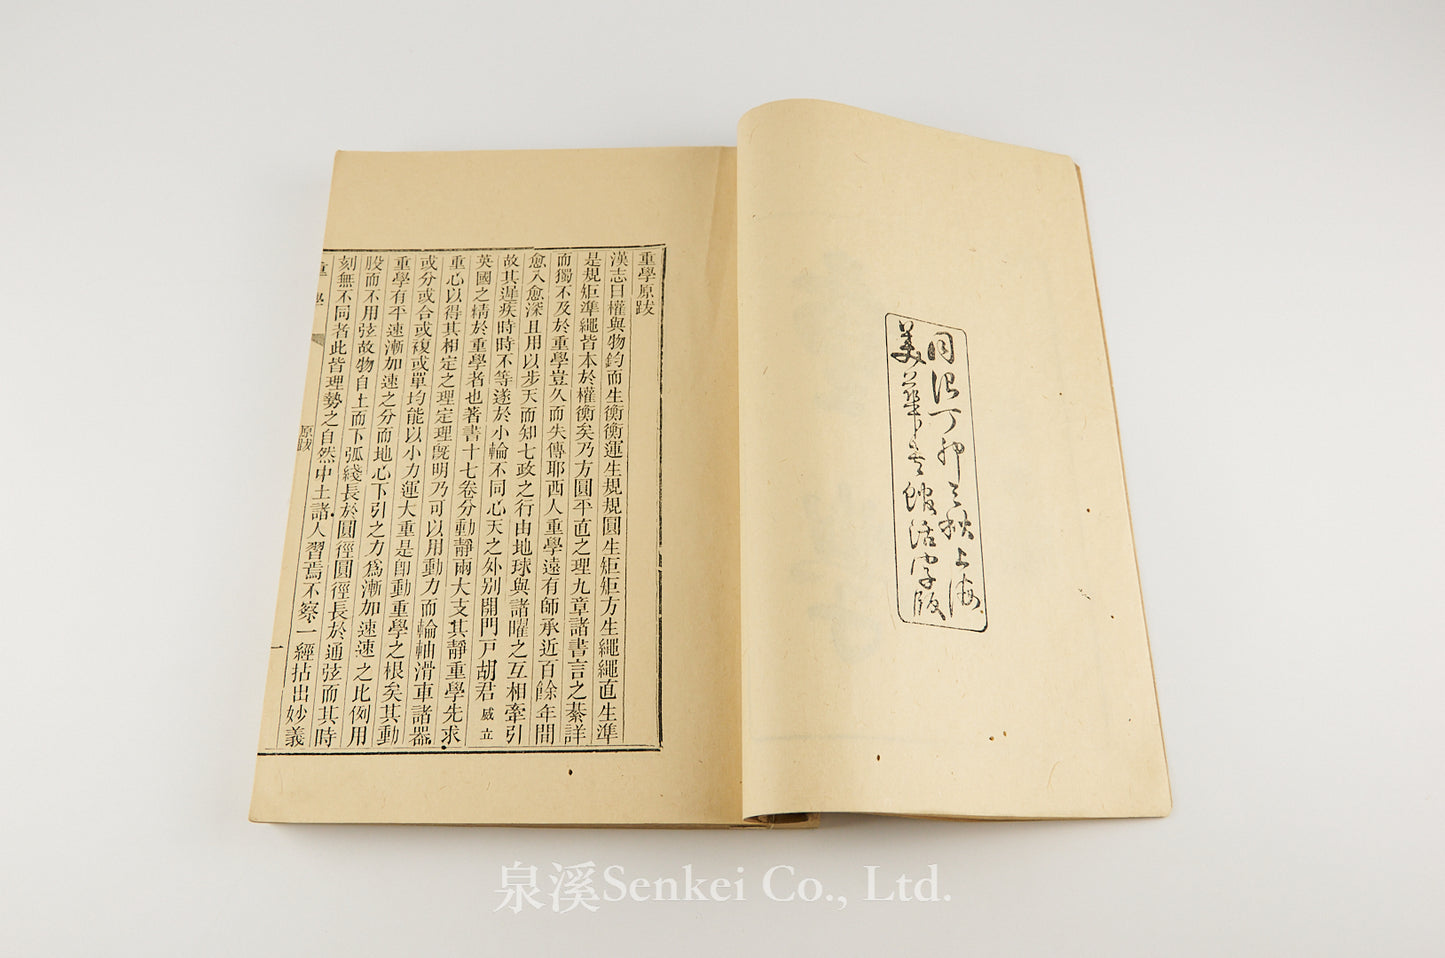 同治丁卯三秋上海
美華書館活字版
重學原跋
漢志曰權與物鈞而生衡衡運生規規圓生矩矩方生繩繩直生準
是規矩準繩皆本於權衡矣乃方圓平直之理九章諸書言之綦詳
而獨不及於重學豈久而失傳耶西人重學遠有師承近百餘年間
愈入愈深且用以步天而知七政之行由地球與諸曜之互相牽引
故其遲疾時時不等遂於小輪不同心天之外别開門戸胡君威立
英國之精於重學者也著書十七卷分動靜兩大支其靜重學先求
重心以得其相定之理定理旣明乃可以用動力而輪軸滑車諸器
或分或合或複或單均能以小力運大重是卽動重學之根矣其動
重學有平速漸加速之分而地心下引之力爲漸加速速之比例用
股而不用弦故物自上而下弧綫長於圓徑圓徑長於通弦而其時
刻無不同者此皆理勢之自然中土諸人習焉不察一經拈出妙義
重學
原跋
一
泉溪Senkei Co., Ltd.